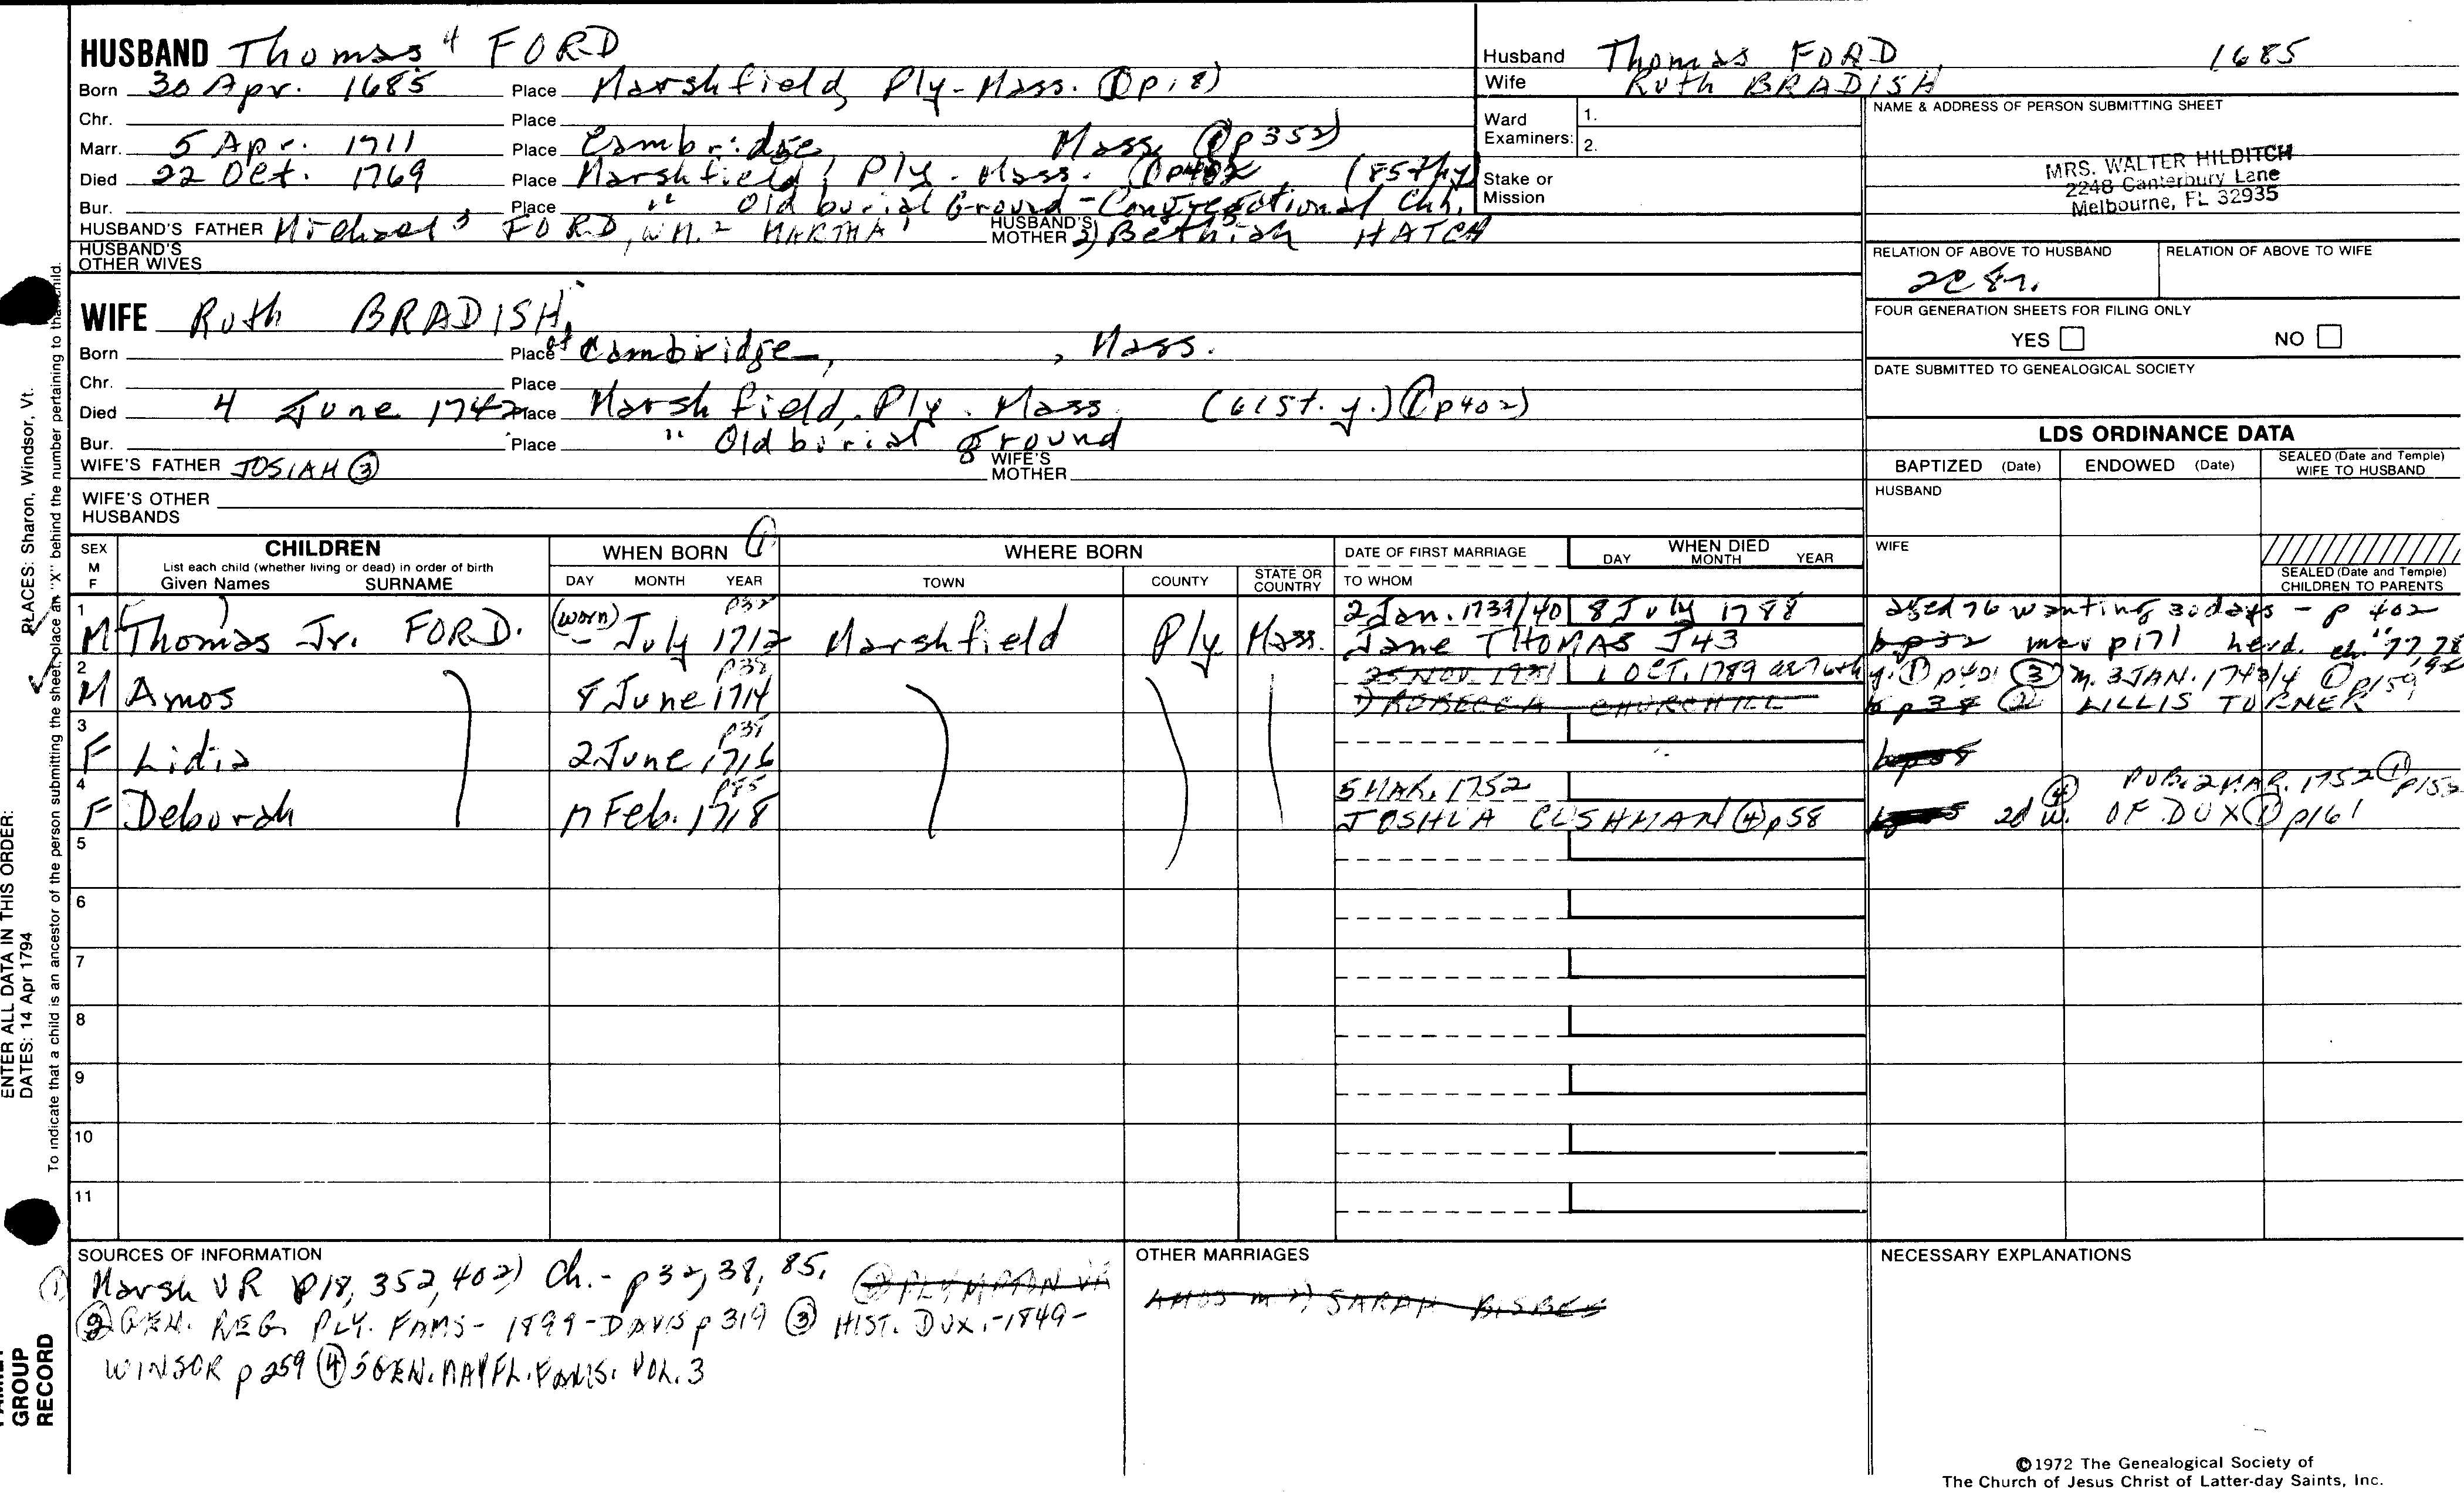 HUSBAND Thomas 4 FORD
Born 30 Apr. 1685 Place Marshfield, Ply-Mass. (1) p18)
Chr. Place
Marr. 5 Apr. 1711 Place Cambridge, Mass. (1) p352)
Died 22 Oct. 1769 Place Marshfield, Ply. Mass. (1) p402 (85thy)
Bur. Place " Old burial Ground - Congregational Chh.
HUSBAND'S FATHER Michael 3 FORD, WM. 2 MARTHA 1 HUSBAND'S MOTHER 2) Bethiah HATCH
HUSBAND'S OTHER WIVES
Husband Thomas FORD 1685
Wife Ruth BRADISH
Ward Examiners: 1.
2.
Stake or Mission
NAME & ADDRESS OF PERSON SUBMITTING SHEET
MRS. WALTER HILDITCH
2248 Canterbury Lane
Melbourne, FL 32935
RELATION OF ABOVE TO HUSBAND RELATION OF ABOVE TO WIFE
FOUR GENERATION SHEETS FOR FILING ONLY
YES NO
DATE SUBMITTED TO GENEALOGICAL SOCIETY
WIFE Ruth BRADISH,
Born Place of Cambridge, , Mass.
Chr. Place
Died 4 June 1742 Place Marshfield, Ply. Mass. (61st. y.) (1) p402)
Bur. Place " Old burial ground
WIFE'S FATHER JOSIAH (3) WIFE'S MOTHER
WIFE'S OTHER HUSBANDS
LDS ORDINANCE DATA
BAPTIZED (Date) ENDOWED (Date) SEALED (Date and Temple) WIFE TO HUSBAND
HUSBAND
WIFE
SEALED (Date and Temple) CHILDREN TO PARENTS
SEX M F CHILDREN WHEN BORN (1) WHERE BORN DATE OF FIRST MARRIAGE WHEN DIED
List each child (whether living or dead) in order of birth
Given Names SURNAME DAY MONTH YEAR TOWN COUNTY STATE OR COUNTRY TO WHOM DAY MONTH YEAR
1 p32 2 Jan. 1739/40 8 July 1788 aged 76 wanting 30 days - p 402
M Thomas Jr. FORD. (worn) - July 1712 Marshfield Ply Mass. Jane THOMAS J43 b p32 mar p171
2 p38 25 NOV. 1 OCT. 1789 (1) p401 (3) m. 3 JAN. 1743/4 (1) p159
M Amos 8 June 1714 1) REBECCA CHURCHILL b p38 (2) LILLIS TURNER
3 p38
F Lidia 2 June 1716
4 p85 5 MAR. 1752 PUB. 2 MAR. 1752 (1) p153
F Deborah 17 Feb. 1718 JOSHUA CUSHMAN (4) p58 2d (4) w. OF DUX (1) p161
5
6
7
8
9
10
11
SOURCES OF INFORMATION
(1) Marsh VR p18, 352, 402) Ch. - p32, 38, 85, (2) PLYMPTON VR
(2) GEN. REG. PLY. FAMS - 1899 - DAVIS p 319 (3) HIST. DUX. - 1849 -
WINSOR p 259 (4) 5 GEN. MAYFL. FAMS. VOL. 3
OTHER MARRIAGES
AMOS m 2) SARAH BISBEE
NECESSARY EXPLANATIONS
©1972 The Genealogical Society of
The Church of Jesus Christ of Latter-day Saints, Inc.
PLACES: Sharon, Windsor, Vt.
ENTER ALL DATA IN THIS ORDER:
DATES: 14 Apr 1794
To indicate that a child is an ancestor of the person submitting the sheet, place an "X" behind the number pertaining to that child.
GROUP
RECORD